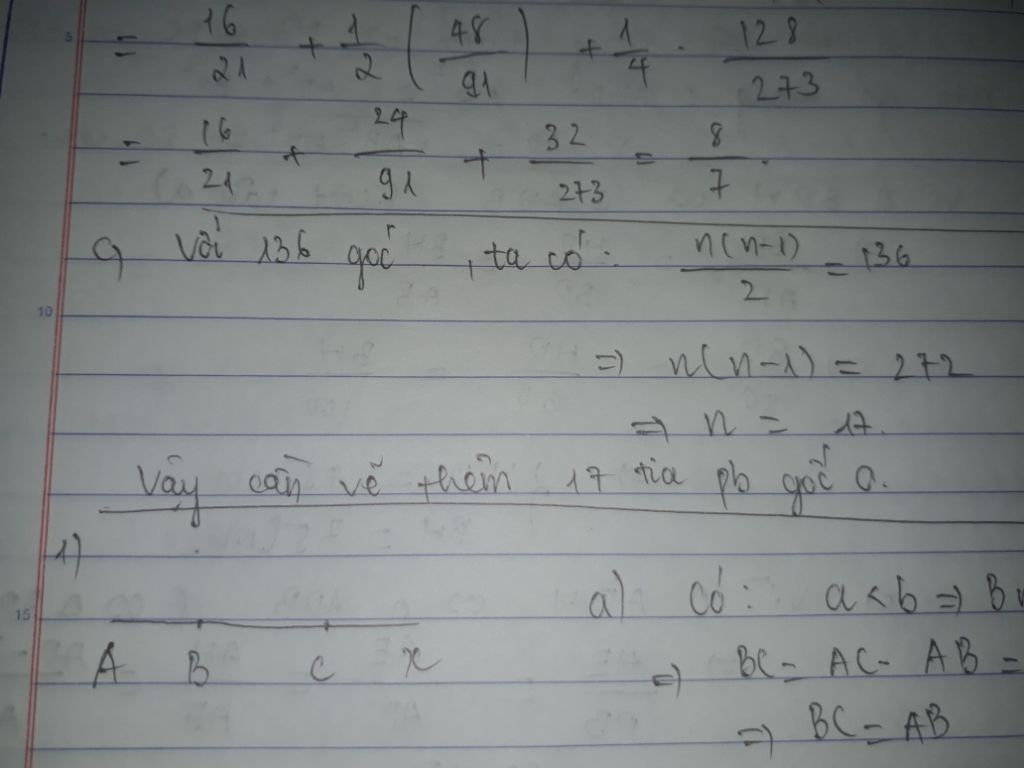 5
= 16/21 + 1/2 (48/91) + 1/4 . 128/273
= 16/21 + 24/91 + 32/273 = 8/7 .
c, Với 136 góc , ta có: n(n-1)/2 = 136
10
=> n(n-1) = 272
=> n = 17.
Vậy cần vẽ thêm 17 tia pb gốc O.
1)
a) Có: a < b =>
15
A B C x
=> BC = AC - AB =
=> BC = AB